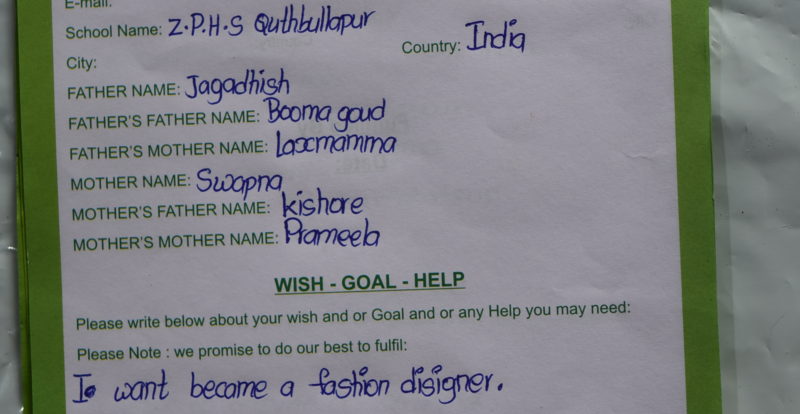 E-mail:
School Name: Z.P.H.S Quthbullapur
Country: India
City:
FATHER NAME: Jagadhish
FATHER'S FATHER NAME: Booma goud
FATHER'S MOTHER NAME: Laxmamma
MOTHER NAME: Swapna
MOTHER'S FATHER NAME: kishore
MOTHER'S MOTHER NAME: Prameela
WISH - GOAL - HELP
Please write below about your wish and or Goal and or any Help you may need:
Please Note : we promise to do our best to fulfil:
I want became a fashion disigner.